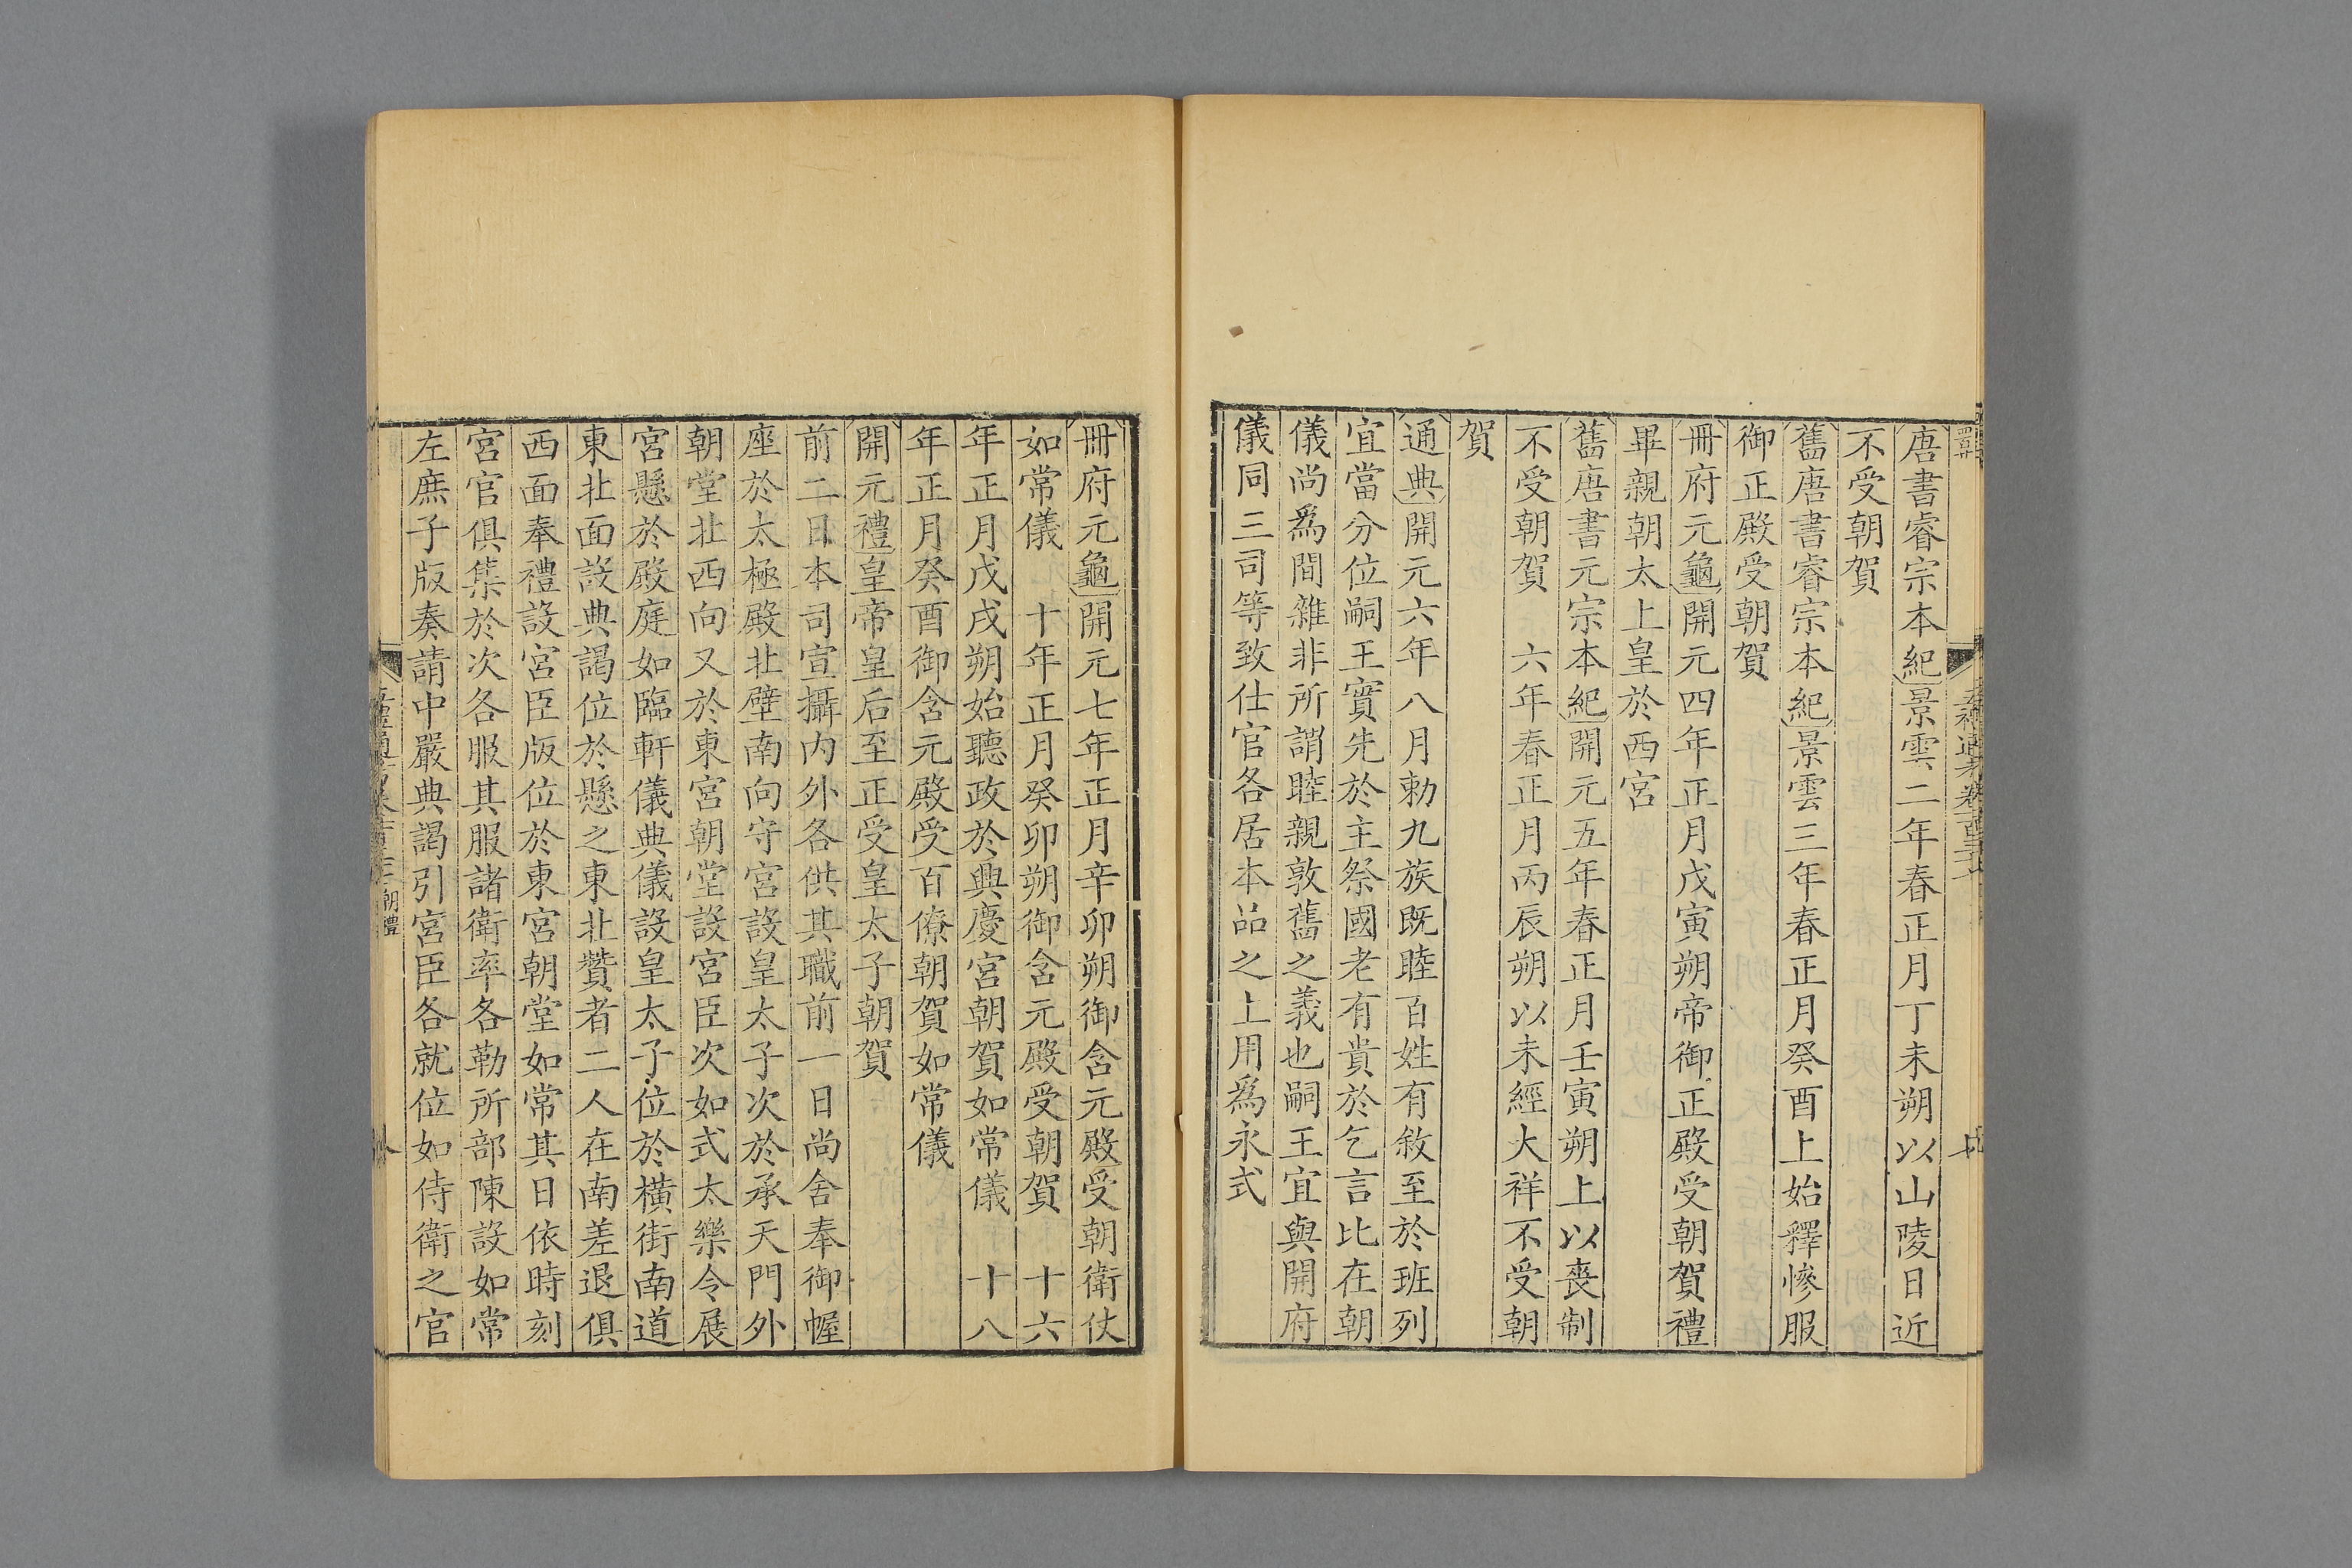 唐書睿宗本紀景雲二年春正月丁未朔以山陵日近
不受朝賀
舊唐書睿宗本紀景雲三年春正月癸酉上始釋慘服
御正殿受朝賀
冊府元龜開元四年正月戊寅朔帝御正殿受朝賀禮
畢親朝太上皇於西宮
舊唐書元宗本紀開元五年春正月壬寅朔上以喪制
不受朝賀　六年春正月丙辰朔以未經大祥不受朝
賀
通典開元六年八月勅九族旣睦百姓有敘至於班列
宜當分位嗣王實先於主祭國老有貴於乞言比在朝
儀尚爲間雜非所謂睦親敦舊之義也嗣王宜與開府
儀同三司等致仕官各居本品之上用爲永式
冊府元龜開元七年正月辛卯朔御含元殿受朝衛仗
如常儀　十年正月癸卯朔御含元殿受朝賀　十六
年正月戊戌朔始聽政於興慶宮朝賀如常儀　十八
年正月癸酉御含元殿受百僚朝賀如常儀
開元禮皇帝皇后至正受皇太子朝賀
前二日本司宣攝内外各供其職前一日尚舍奉御幄
座於太極殿北壁南向守宮設皇太子次於承天門外
朝堂北西向又於東宮朝堂設宮臣次如式太樂令展
宮懸於殿庭如臨軒儀典儀設皇太子位於橫街南道
東北面設典謁位於懸之東北贊者二人在南差退俱
西面奉禮設宮臣版位於東宮朝堂如常其日依時刻
宮官俱集於次各服其服諸衛率各勒所部陳設如常
左庶子版奏請中嚴典謁引宮臣各就位如侍衛之官
朝禮